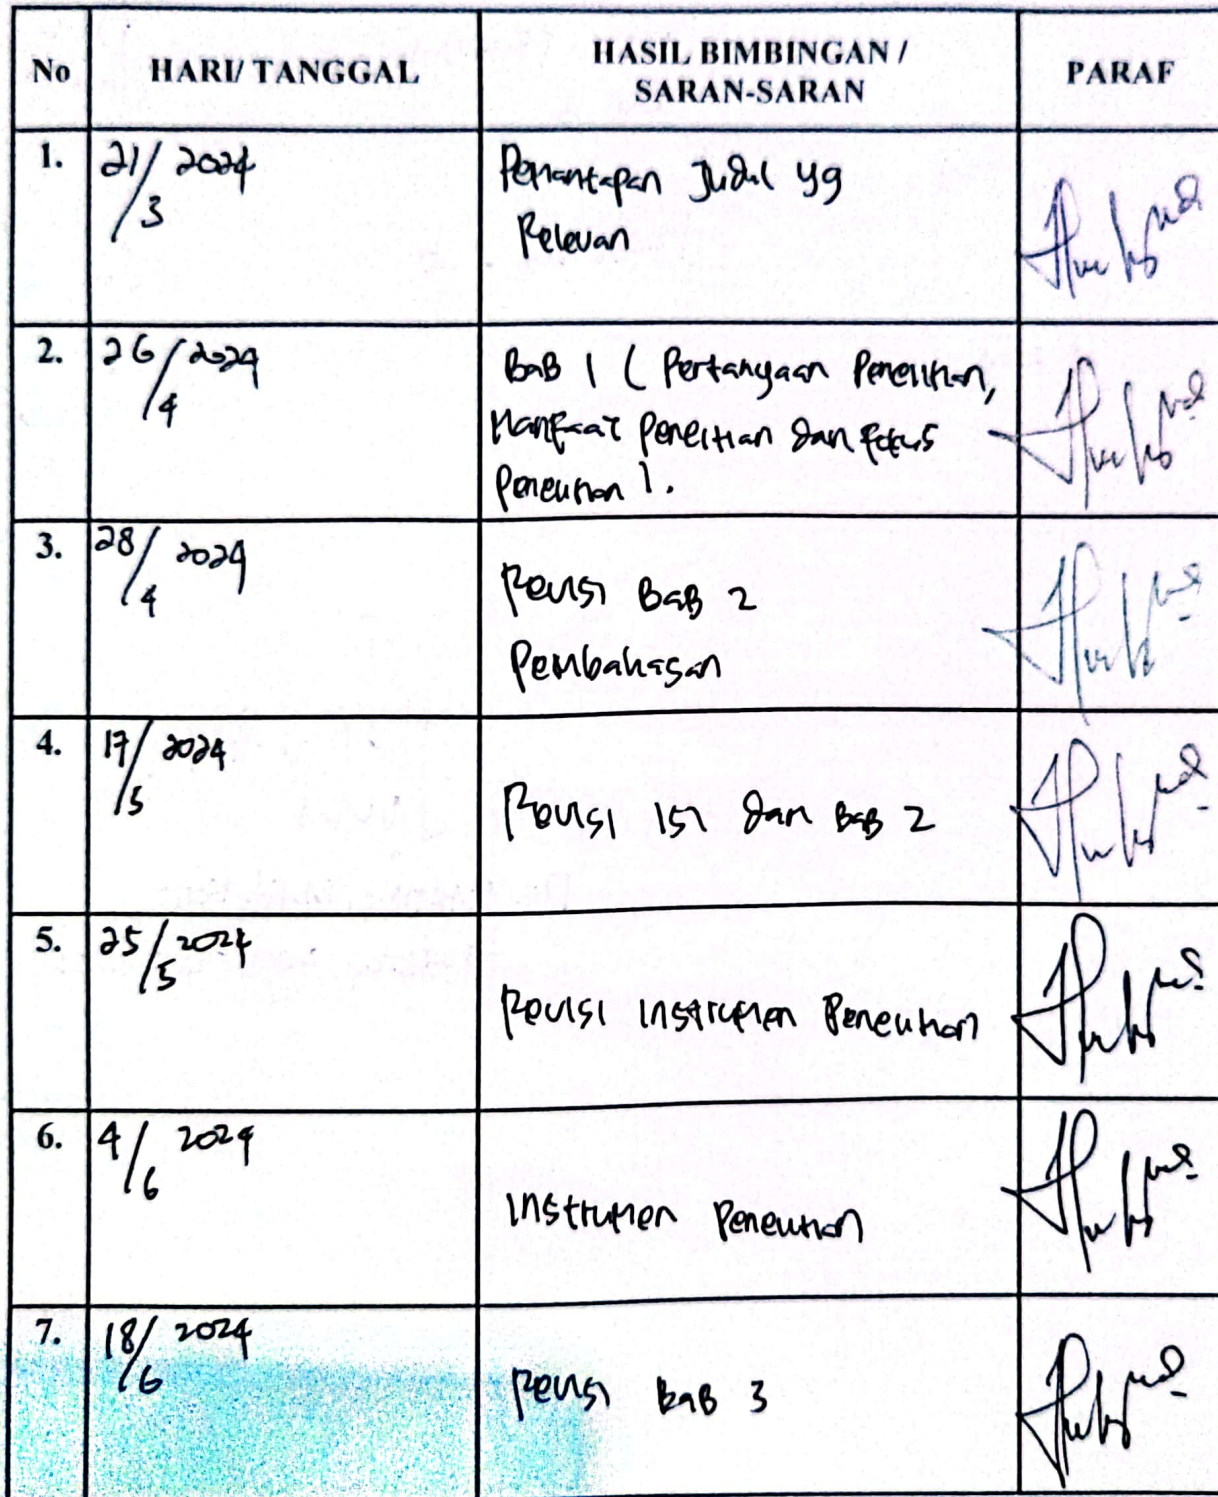 No HARI/ TANGGAL HASIL BIMBINGAN / PARAF
SARAN-SARAN
1. 21/3 2024 Pemantapan Judul yg
Relevan
2. 26/4 2024 BAB 1 ( Pertanyaan Penelitian,
Manfaat Penelitian dan fokus
Penelitian ).
3. 28/4 2024 Revisi BAB 2
Pembahasan
4. 17/5 2024 Revisi Isi dan BAB 2
5. 25/5 2024 Revisi Instrumen Penelitian
6. 4/6 2024 Instrumen Penelitian
7. 18/6 2024 Revisi BAB 3